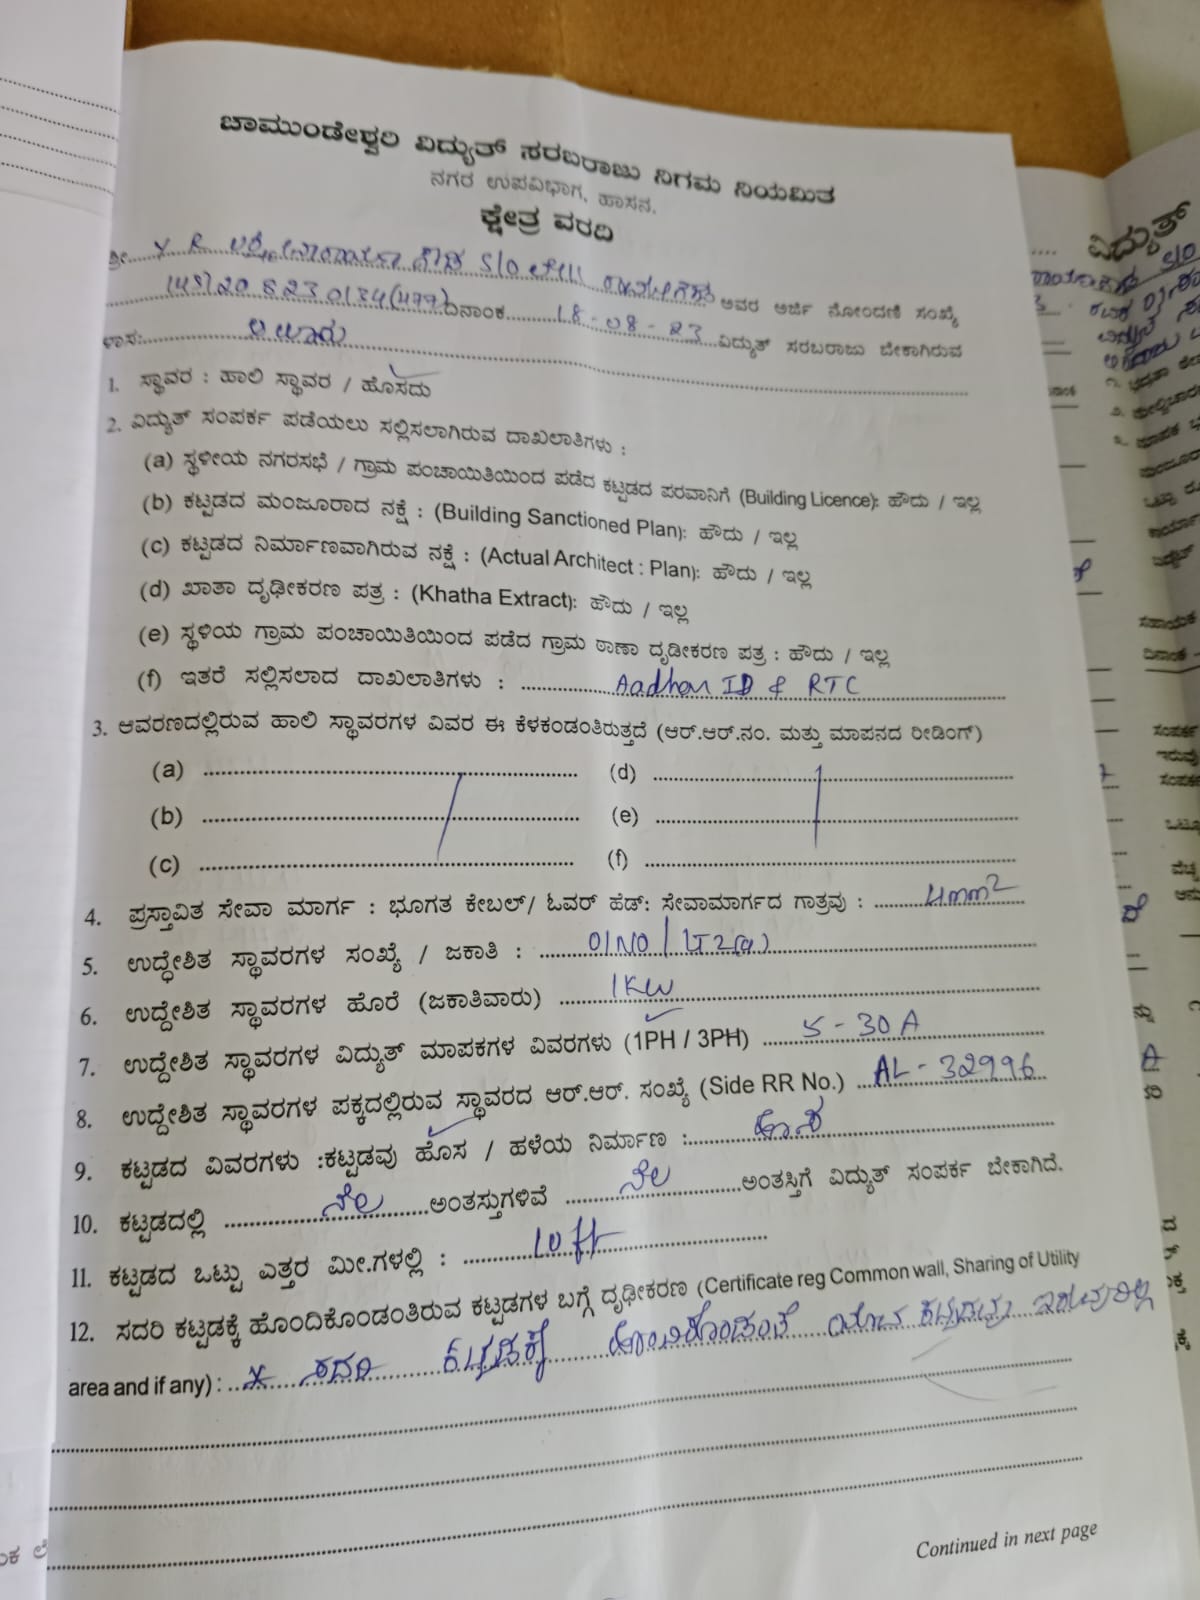 ಚಾಮುಂಡೇಶ್ವರಿ ವಿದ್ಯುತ್ ಸರಬರಾಜು ನಿಗಮ ನಿಯಮಿತ
ನಗರ ಉಪವಿಭಾಗ, ಹಾಸನ.
ಕ್ಷೇತ್ರ ವರದಿ
ಶ್ರೀ Y R S/O ಅವರ ಅರ್ಜಿ ನೋಂದಣಿ ಸಂಖ್ಯೆ
ದಿನಾಂಕ 18-08-23 ವಿದ್ಯುತ್ ಸರಬರಾಜು ಬೇಕಾಗಿರುವ
1. ಸ್ಥಾವರ : ಹಾಲಿ ಸ್ಥಾವರ / ಹೊಸದು
2. ವಿದ್ಯುತ್ ಸಂಪರ್ಕ ಪಡೆಯಲು ಸಲ್ಲಿಸಲಾಗಿರುವ ದಾಖಲಾತಿಗಳು :
(a) ಸ್ಥಳೀಯ ನಗರಸಭೆ / ಗ್ರಾಮ ಪಂಚಾಯಿತಿಯಿಂದ ಪಡೆದ ಕಟ್ಟಡದ ಪರವಾನಿಗೆ (Building Licence): ಹೌದು / ಇಲ್ಲ
(b) ಕಟ್ಟಡದ ಮಂಜೂರಾದ ನಕ್ಷೆ : (Building Sanctioned Plan): ಹೌದು / ಇಲ್ಲ
(c) ಕಟ್ಟಡದ ನಿರ್ಮಾಣವಾಗಿರುವ ನಕ್ಷೆ : (Actual Architect : Plan): ಹೌದು / ಇಲ್ಲ
(d) ಖಾತಾ ದೃಢೀಕರಣ ಪತ್ರ : (Khatha Extract): ಹೌದು / ಇಲ್ಲ
(e) ಸ್ಥಳಿಯ ಗ್ರಾಮ ಪಂಚಾಯಿತಿಯಿಂದ ಪಡೆದ ಗ್ರಾಮ ಠಾಣಾ ದೃಡೀಕರಣ ಪತ್ರ : ಹೌದು / ಇಲ್ಲ
(f) ಇತರೆ ಸಲ್ಲಿಸಲಾದ ದಾಖಲಾತಿಗಳು : Aadhar ID & RTC
3. ಆವರಣದಲ್ಲಿರುವ ಹಾಲಿ ಸ್ಥಾವರಗಳ ವಿವರ ಈ ಕೆಳಕಂಡಂತಿರುತ್ತದೆ (ಆರ್.ಆರ್.ನಂ. ಮತ್ತು ಮಾಪನದ ರೀಡಿಂಗ್)
(a) (d)
(b) (e)
(c) (f)
4. ಪ್ರಸ್ತಾವಿತ ಸೇವಾ ಮಾರ್ಗ : ಭೂಗತ ಕೇಬಲ್/ ಓವರ್ ಹೆಡ್: ಸೇವಾಮಾರ್ಗದ ಗಾತ್ರವು : 4mm²
5. ಉದ್ಧೇಶಿತ ಸ್ಥಾವರಗಳ ಸಂಖ್ಯೆ / ಜಕಾತಿ : 01NO / LT2(a)
6. ಉದ್ದೇಶಿತ ಸ್ಥಾವರಗಳ ಹೊರೆ (ಜಕಾತಿವಾರು) 1KW
7. ಉದ್ದೇಶಿತ ಸ್ಥಾವರಗಳ ವಿದ್ಯುತ್ ಮಾಪಕಗಳ ವಿವರಗಳು (1PH / 3PH) 5-30A
8. ಉದ್ದೇಶಿತ ಸ್ಥಾವರಗಳ ಪಕ್ಕದಲ್ಲಿರುವ ಸ್ಥಾವರದ ಆರ್.ಆರ್. ಸಂಖ್ಯೆ (Side RR No.) AL-32996
9. ಕಟ್ಟಡದ ವಿವರಗಳು :ಕಟ್ಟಡವು ಹೊಸ / ಹಳೆಯ ನಿರ್ಮಾಣ : ಹೊಸ
10. ಕಟ್ಟಡದಲ್ಲಿ ನೆಲ ಅಂತಸ್ತುಗಳಿವೆ ನೆಲ ಅಂತಸ್ತಿಗೆ ವಿದ್ಯುತ್ ಸಂಪರ್ಕ ಬೇಕಾಗಿದೆ.
11. ಕಟ್ಟಡದ ಒಟ್ಟು ಎತ್ತರ ಮೀ.ಗಳಲ್ಲಿ : 10 ft
12. ಸದರಿ ಕಟ್ಟಡಕ್ಕೆ ಹೊಂದಿಕೊಂಡಂತಿರುವ ಕಟ್ಟಡಗಳ ಬಗ್ಗೆ ದೃಢೀಕರಣ (Certificate reg Common wall, Sharing of Utility
area and if any) : ಸದರಿ ಕಟ್ಟಡಕ್ಕೆ ಹೊಂದಿಕೊಂಡಂತೆ ಯಾವ ಕಟ್ಟಡವು ಇರುವುದಿಲ್ಲ
Continued in next page